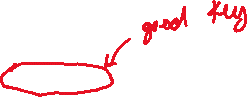 good key